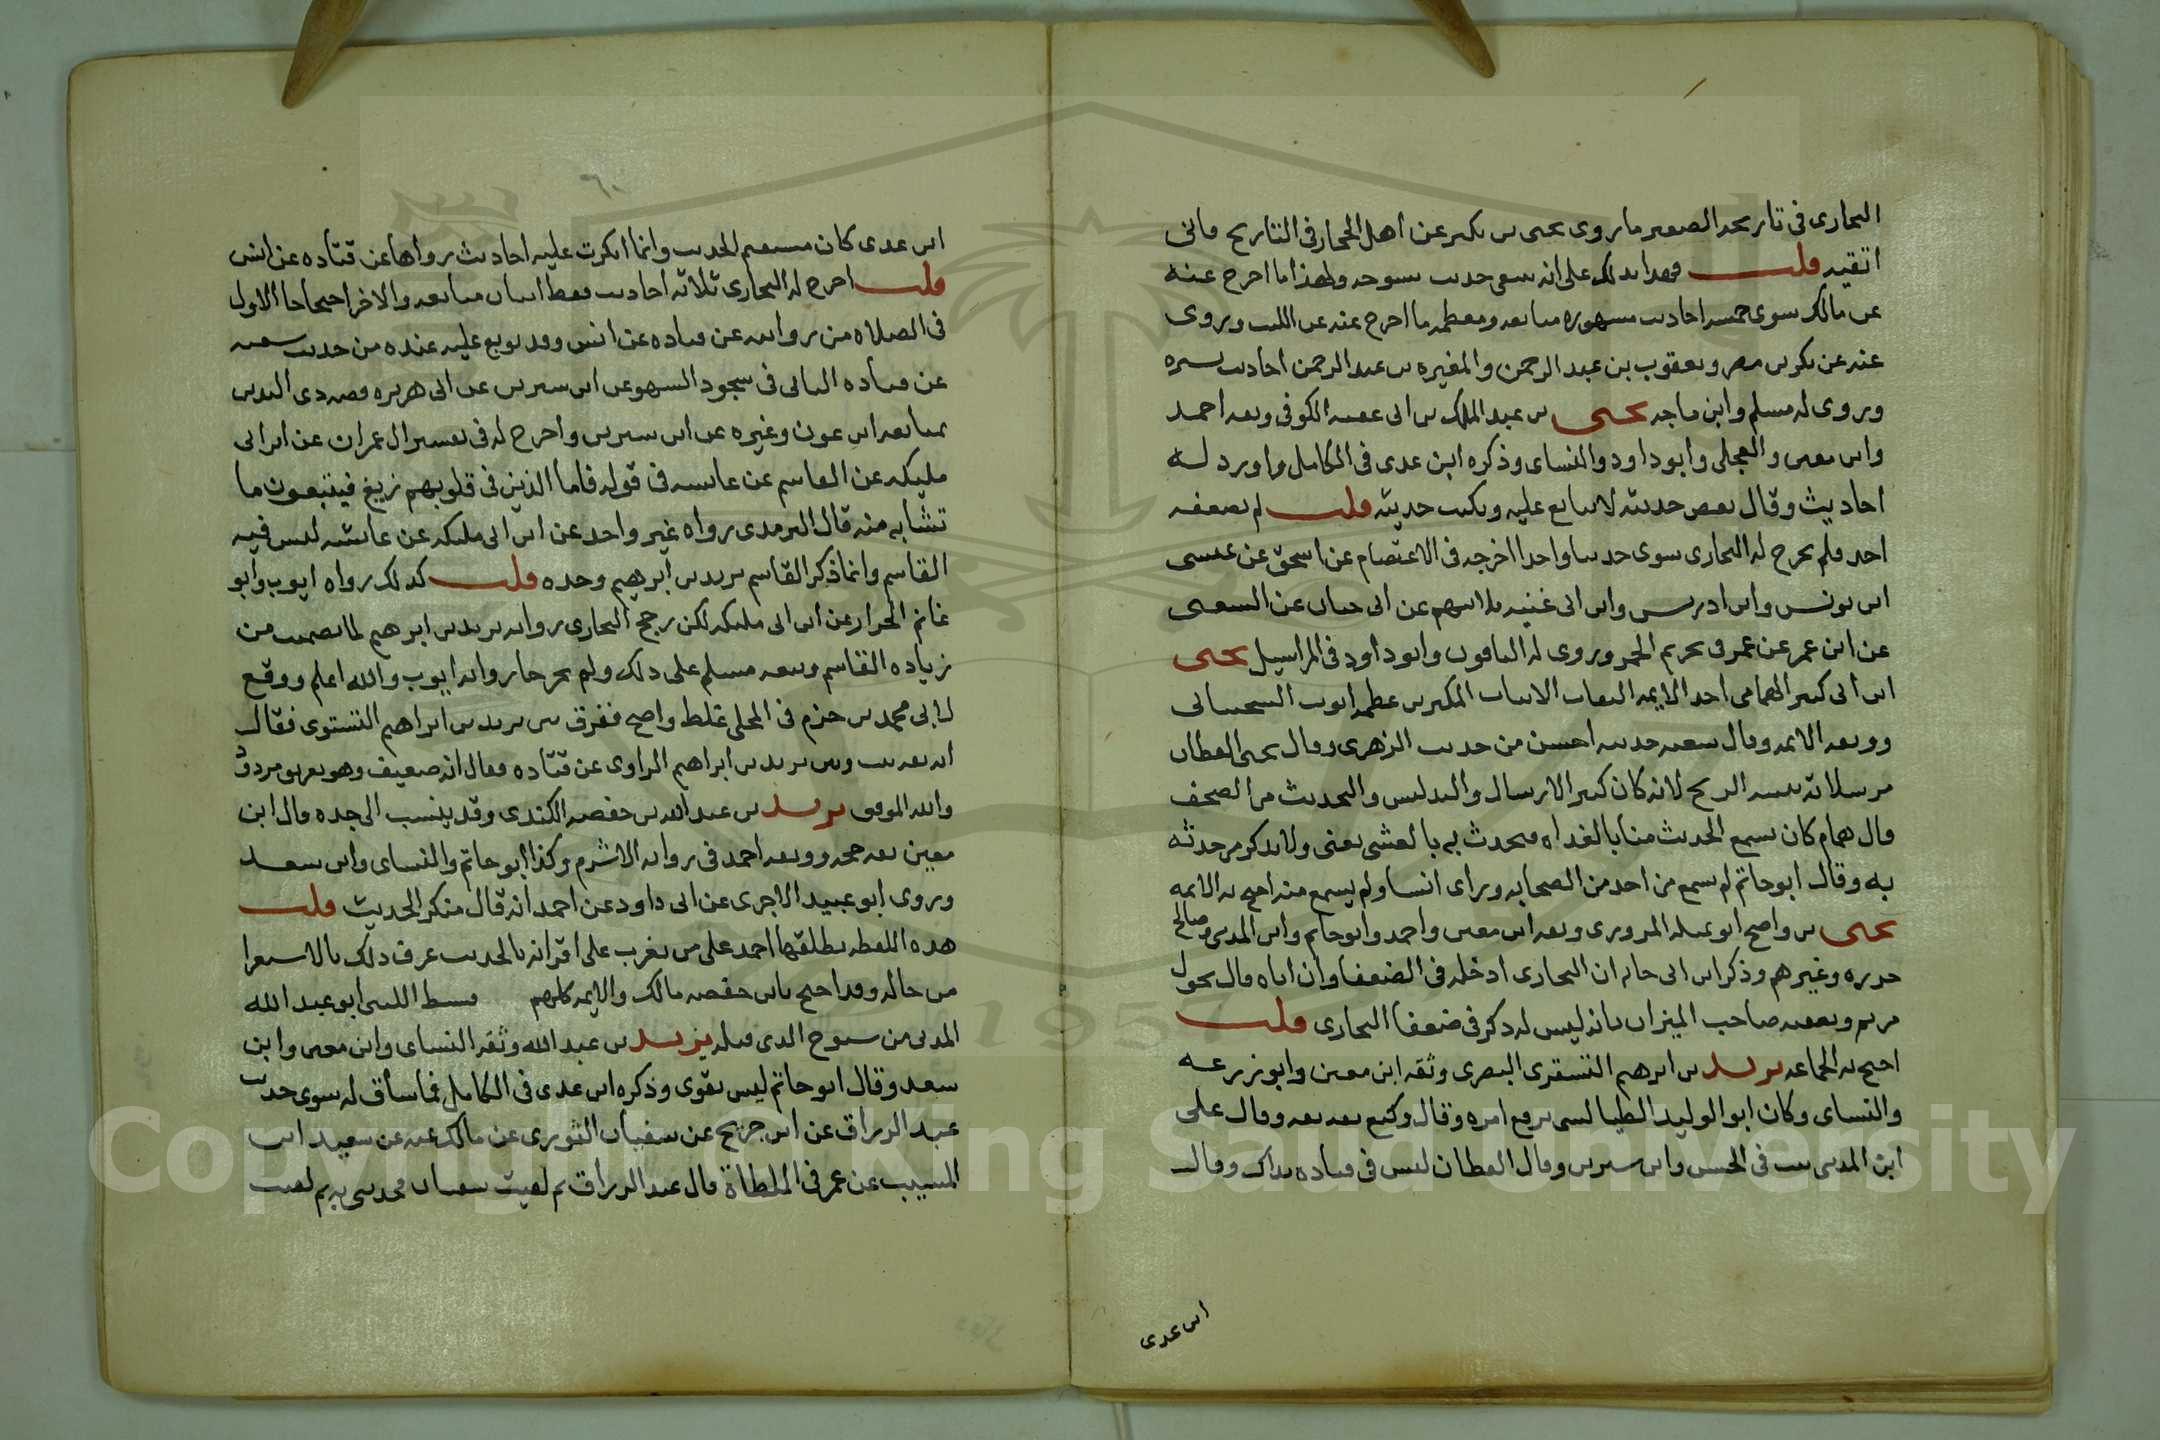 البخارى فى تاريخه الصغير ما روى يحيى بن بكير عن اهل الحجاز فى التاريخ فانى
اتقيه قلت فهذا يدلك على انه ينتقى حديث شيوخه ولهذا ما اخرج عنه
عن مالك سوى خمسه احاديث مشهوره متابعه ومعظم ما اخرج عنه عن الليث وروى
عنه عن بكر بن مضر ويعقوب بن عبد الرحمن والمغيره بن عبد الرحمن احاديث يسيره
وروى له مسلم وابن ماجه يحيى بن عبد الملك بن ابى غنيه الكوفى وثقه احمد
وابن معين والعجلى وابو داود والنساى وذكره ابن عدى فى الكامل واورد له
احاديث وقال بعض حديثه لا يتابع عليه ويكتب حديثه قلت لم يضعفه
احد فلم يخرج له البخارى سوى حديثا واحدا اخرجه فى الاعتصام عن اسحق عن عيسى
ابن يونس وابن ادريس وابن ابى غنيه ثلاثتهم عن ابى حيان عن الشعبى
عن ابن عمر عن عمر فى تحريم الخمر وروى له الباقون وابو داود فى المراسيل يحيى
ابن ابى كثير اليمامى احد الايمه الثقات الاثبات المكثرين عظمه ايوب السختيانى
ووثقه الايمه وقال شعبه حديثه احسن من حديث الزهرى وقال يحيى القطان
مرسلاته شبه الريح لانه كان كثير الارسال والتدليس والتحديث من الصحف
قال همام كان يسمع الحديث منا بالغداه فيحدث به بالعشى يعنى ولا يذكر من حدثه
به وقال ابو حاتم لم يسمع من احد من الصحابه وراى انسا ولم يسمع منه احتج به الايمه
يحيى بن واضح ابو تميله المروزى وثقه ابن معين واحمد وابو حاتم وابن المدينى وصالح
جزره وغيرهم وذكر ابن ابى حاتم ان البخارى ادخله فى الضعفا وان اباه قال يحول
من ثم وتعقبه صاحب الميزان بانه ليس له ذكر فى ضعفا البخارى قلت
احتج به الجماعه يزيد بن ابرهيم التسترى البصرى وثقه ابن معين وابو زرعه
والنساى وكان ابو الوليد الطيالسى يرفع امره وقال وكيع ثقه ثقه وقال على
ابن المدينى ثبت فى الحسن وابن سيرين وقال القطان ليس فى قتاده بذاك وقال
ابن عدى
ابن عدى كان مستقيم الحديث وانما انكرت عليه احاديث رواها عن قتاده عن انس
قلت اخرج له البخارى ثلاثه احاديث فقط اثنان متابعه والاخر احتجاجا الاول
فى الصلاه من روايته عن قتاده عن انس وقد توبع عليه عنده من حديث شعبه
عن قتاده الثانى فى سجود السهو عن ابن سيرين عن ابى هريره قصه ذى اليدين
بمتابعه ابن عون وغيره عن ابن سيرين واخرج له فى تفسير ال عمران عن ابن ابى
مليكه عن القاسم عن عايشه فى قوله فاما الذين فى قلوبهم زيغ فيتبعون ما
تشابه منه قال الترمذى رواه غير واحد عن ابن ابى مليكه عن عائشه ليس فيه
القاسم وانما ذكر القاسم يزيد بن ابرهيم وحده قلت كذلك رواه ايوب وابو
عامر الخزاز عن ابن ابى مليكه لكن رجح البخارى روايه يزيد بن ابرهيم لما تضمنت من
زياده القاسم وتبعه مسلم على ذلك ولم يخرجا روايه ايوب والله اعلم ووقع
لابى محمد بن حزم فى المحلى غلط واضح ففرق بين يزيد بن ابراهيم التسترى فقال
انه ثقه ثبت وبين يزيد بن ابراهيم الراوى عن قتاده فقال انه ضعيف وهو تفريق مردود
والله الموفق يزيد بن عبد الله بن خصيفه الكندى وقد ينسب الى جده قال ابن
معين ثقه حجه ووثقه احمد فى روايه الاثرم وكذا ابو حاتم والنساى وابن سعد
وروى ابو عبيد الاجرى عن ابى داود عن احمد انه قال منكر الحديث قلت
هذه اللفظه يطلقها احمد على من يغرب على اقرانه بالحديث عرف ذلك بالاستقرا
من حاله وقد احتج بابن خصيفه مالك والايمه كلهم قسيط الليثى ابو عبد الله
المدنى من شيوخ الذى قبله يزيد بن عبد الله وثقه النساى وابن معين وابن
سعد وقال ابو حاتم ليس بقوى وذكره ابن عدى فى الكامل فما ساق له سوى حديث
عبد الرزاق عن ابن جريج عن سفيان الثورى عن مالك عنه عن سعيد ابن
المسيب عن عمر فى الملطاة قال عبد الرزاق ثم لقيت سفيان فحدثنى به ثم لقيت
Copyright © King Saud University
1957